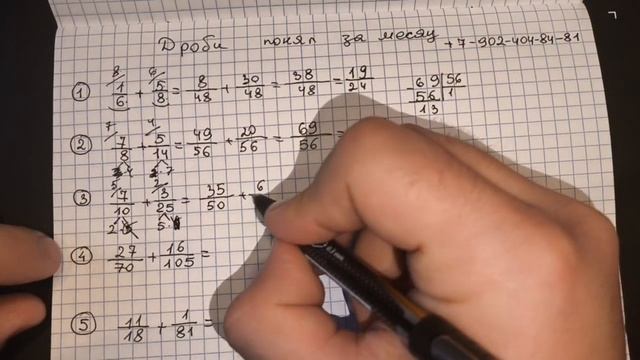 Дроби понял за месяц +7-902-404-84-81
① 8/ 6/ 1/6 + 5/8 = 8/48 + 30/48 = 38/48 = 19/24
69 | 56
56 | 1
13
② 7/ 4/ 7/8 + 5/14 = 49/56 + 20/56 = 69/56 =
2·7
③ 5/ 2/ 7/10 + 3/25 = 35/50 + 6
2·5 5·
④ 27/70 + 16/105 =
⑤ 11/18 + 1/81 =